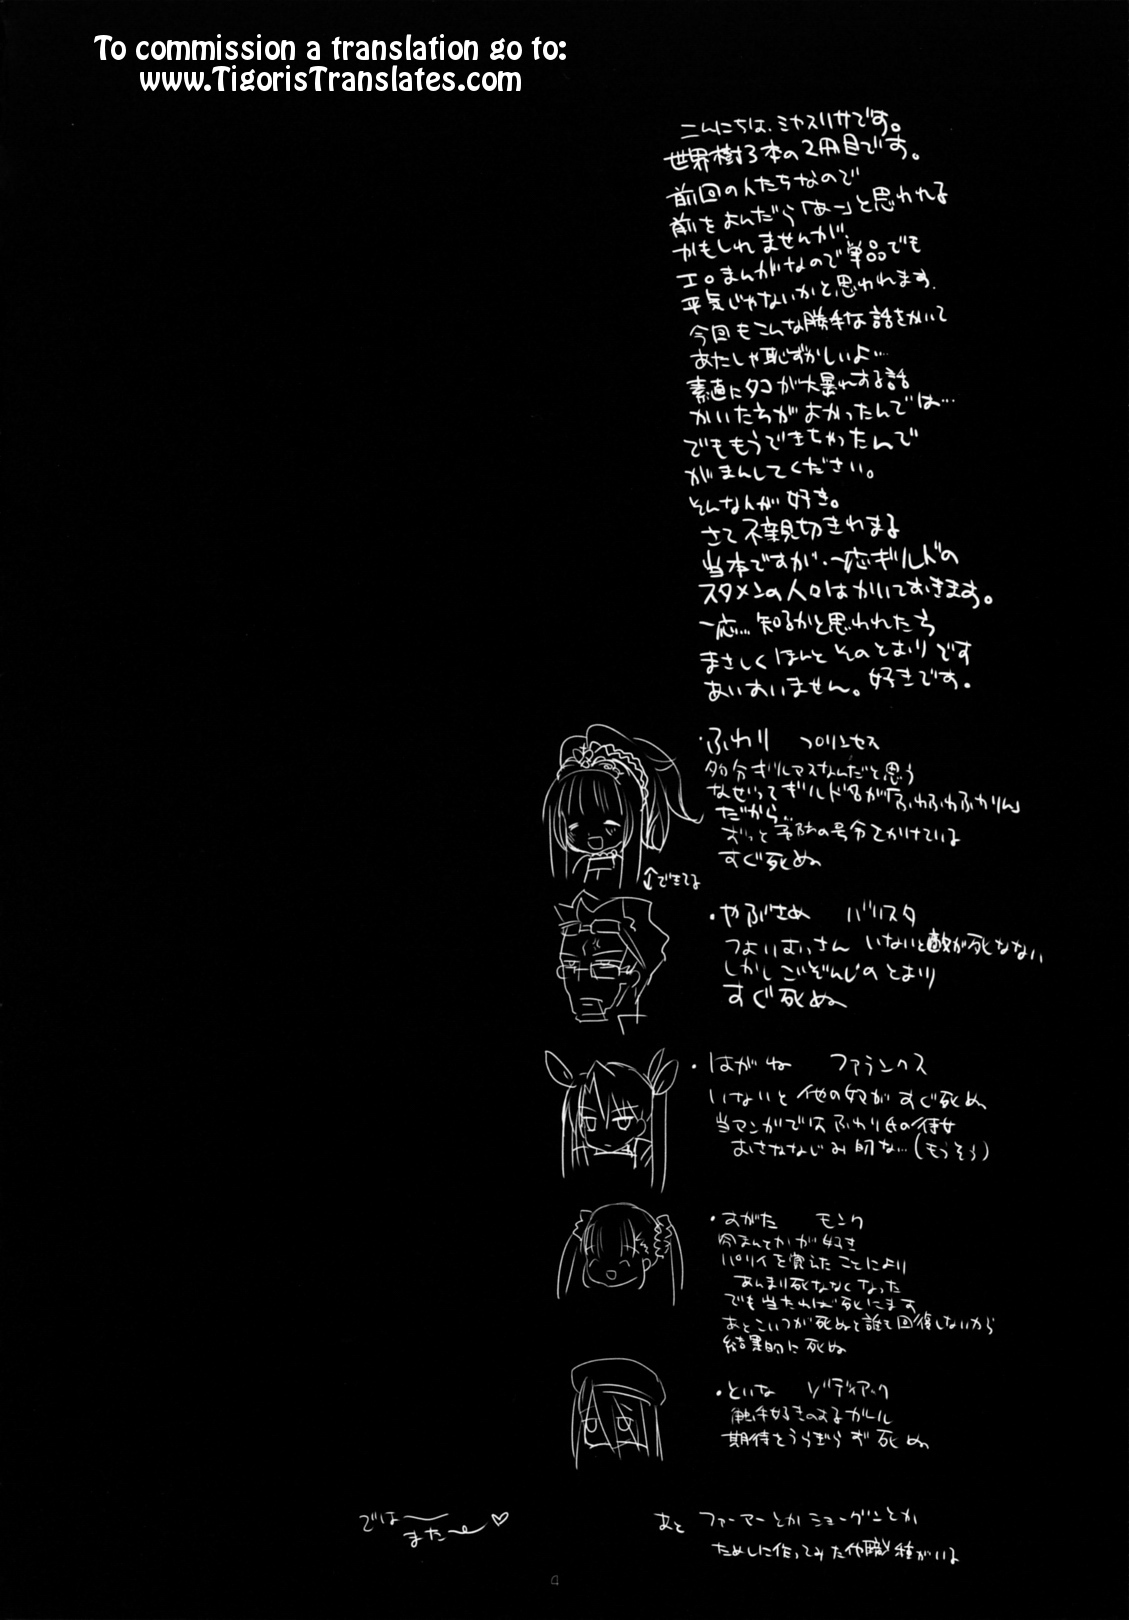 To commission a translation go to:
www.TigorisTranslates.com
こんにちは、ミヤスリサです。
世界樹3本の2冊目です。
前回の人たちなので
前をよんだら「あー」と思われる
かもしれませんが、
エロまんがなので単品でも
平気じゃないかと思われます.
今回もこんな勝手な話をかいて
あたしゃ恥ずかしいよ…
素直にタコが大暴れする話
かいたらがよかったんでは…
でももうできちゃったんで
がまんしてください。
そんなんが好き。
さて不親切きわまる
当本ですが、一応ギルドの
スタメンの人々はかいておきます。
一応…知るかと思われたら
まさしくほんとそのとおりです
あいすいません。好きです.
・ふわり プリンセス
多分ギルマスなんだと思う
なぜってギルド名が「ふわふわふわりん」
だから..
ずっと予防の号令をかけている
すぐ死ぬ
↑できてる
・やぶさめ バリスタ
つよいおっさん いないと敵が死なない
しかしごぞんじのとおり
すぐ死ぬ
・はがね ファランクス
いないと他の奴がすぐ死ぬ
当マンガではふわり氏の侍女
おさななじみ的な…(もうそう)
・すがた モンク
肉まんとかが好き
パリィを覚えたことにより
あんまり死ななくなった
でも当たれば死にます
あとこいつが死ぬと誰も回復しないから
結果的に死ぬ
・といな ゾディアック
触手好きのするガール
期待をうらぎらず死ぬ
では
また
♡
あと ファーマーとかショーグンとか
ためしに作ってみた他職種がいる